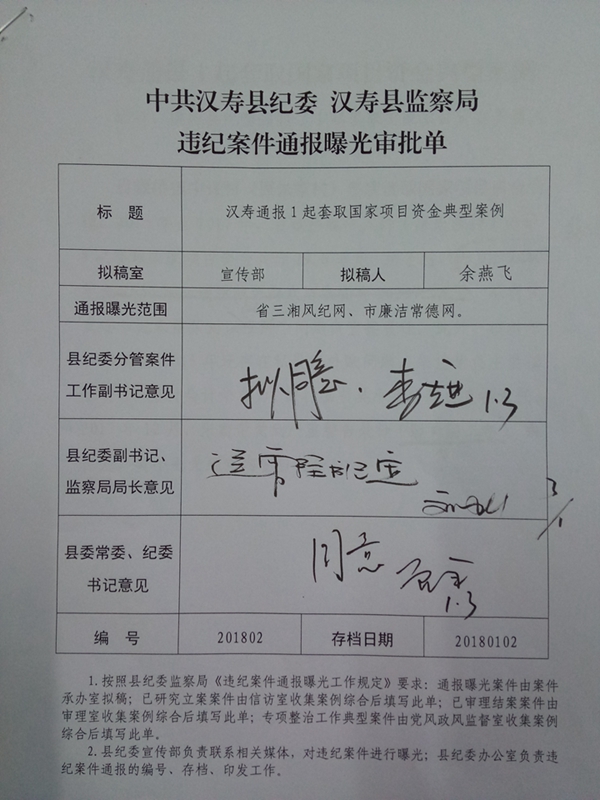 中共汉寿县纪委 汉寿县监察局
违纪案件通报曝光审批单
标 题
汉寿通报1起套取国家项目资金典型案例
拟稿室
宣传部
拟稿人
余燕飞
通报曝光范围
省三湘风纪网、市廉洁常德网。
县纪委分管案件
工作副书记意见
拟同意. 1.3
县纪委副书记、
监察局局长意见
3/1
县委常委、纪委
书记意见
同意
1.3
编 号
201802
存档日期
20180102
1.按照县纪委监察局《违纪案件通报曝光工作规定》要求：通报曝光案件由案件
承办室拟稿；已研究立案案件由信访室收集案例综合后填写此单；已审理结案案件由
审理室收集案例综合后填写此单；专项整治工作典型案件由党风政风监督室收集案例
综合后填写此单。
2.县纪委宣传部负责联系相关媒体，对违纪案件进行曝光；县纪委办公室负责违
纪案件通报的编号、存档、印发工作。